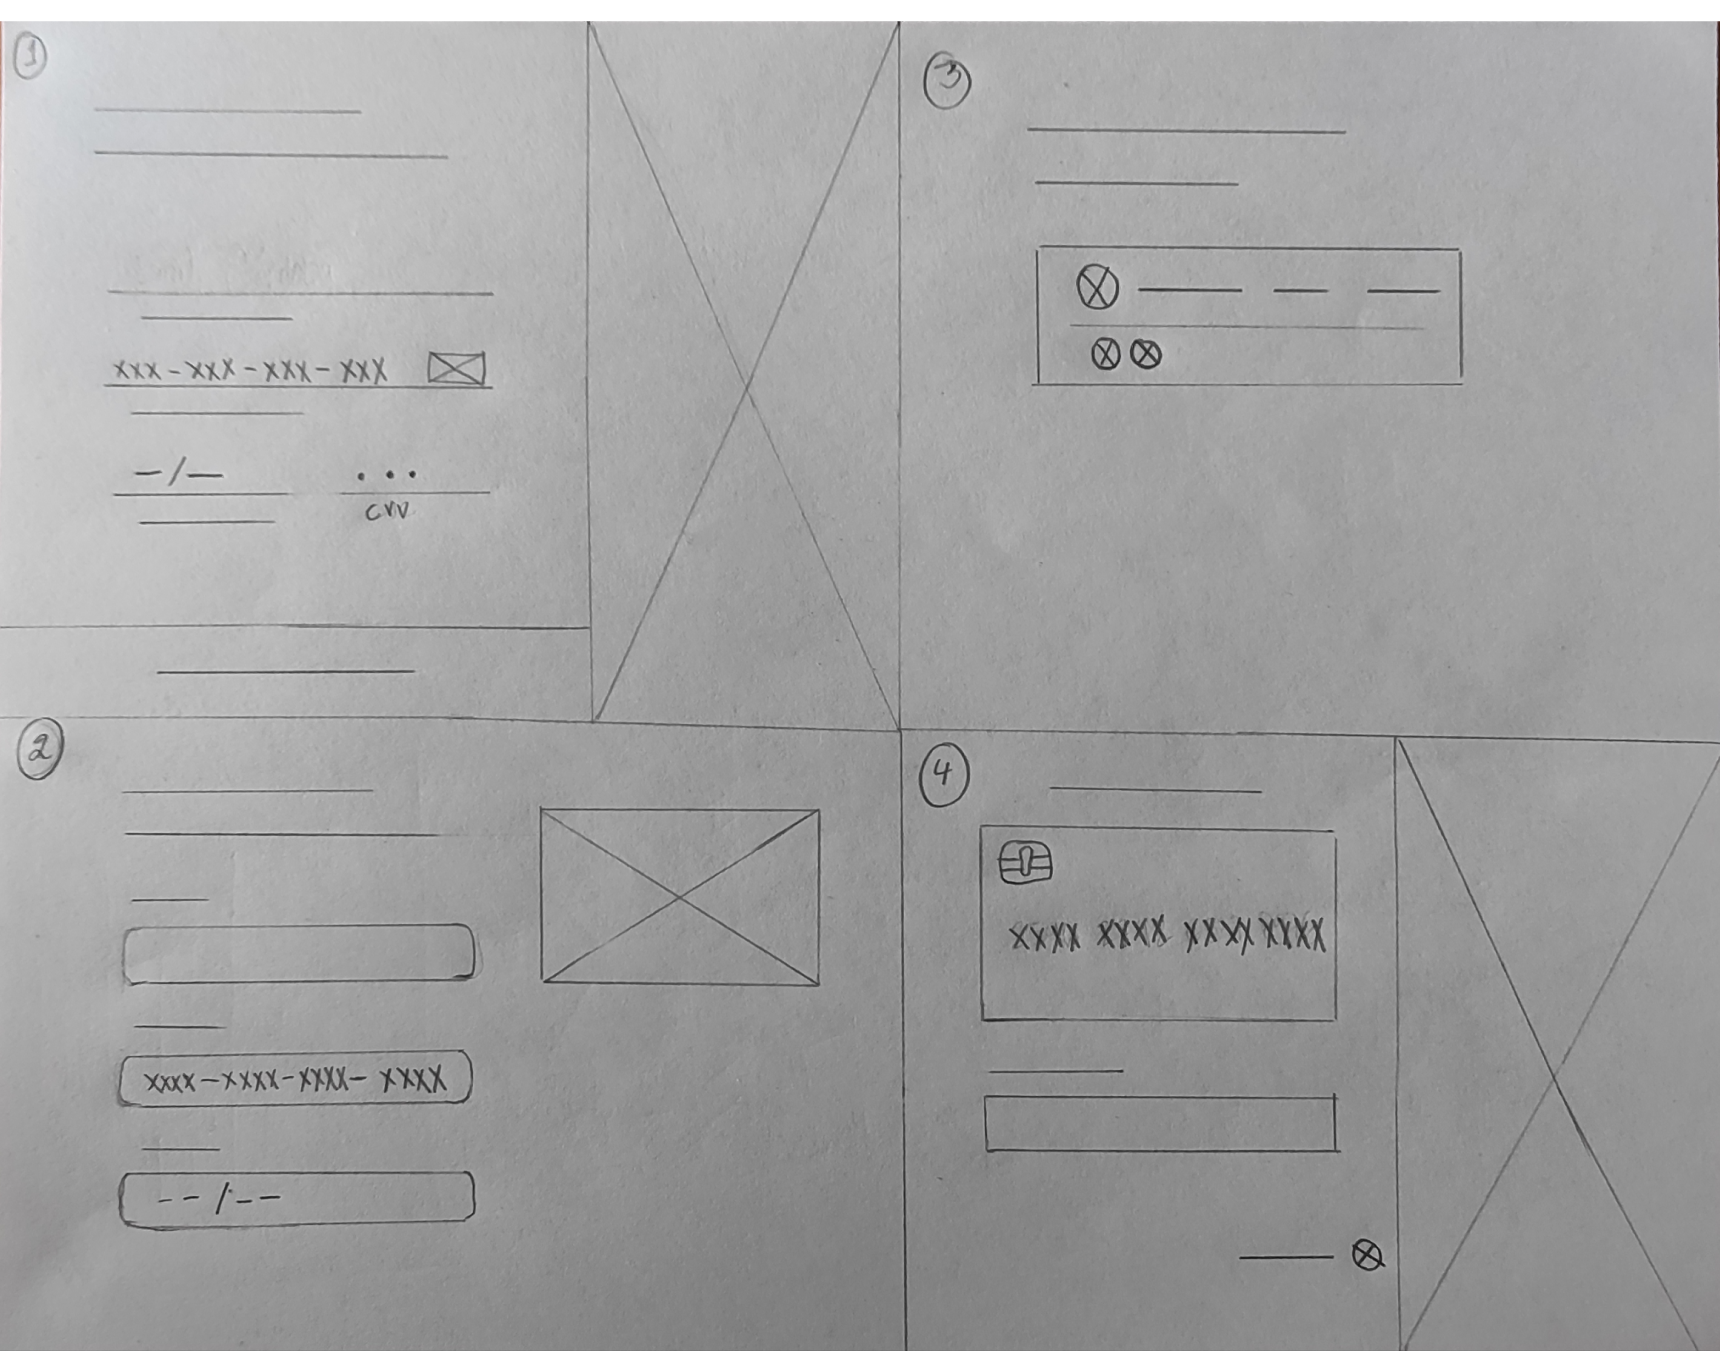 1
xxx - xxx - xxx - xxx
- / -
• • •
CVV
2
xxxx - xxxx - xxxx - xxxx
-- / --
3
4
xxxx xxxx xxxx xxxx